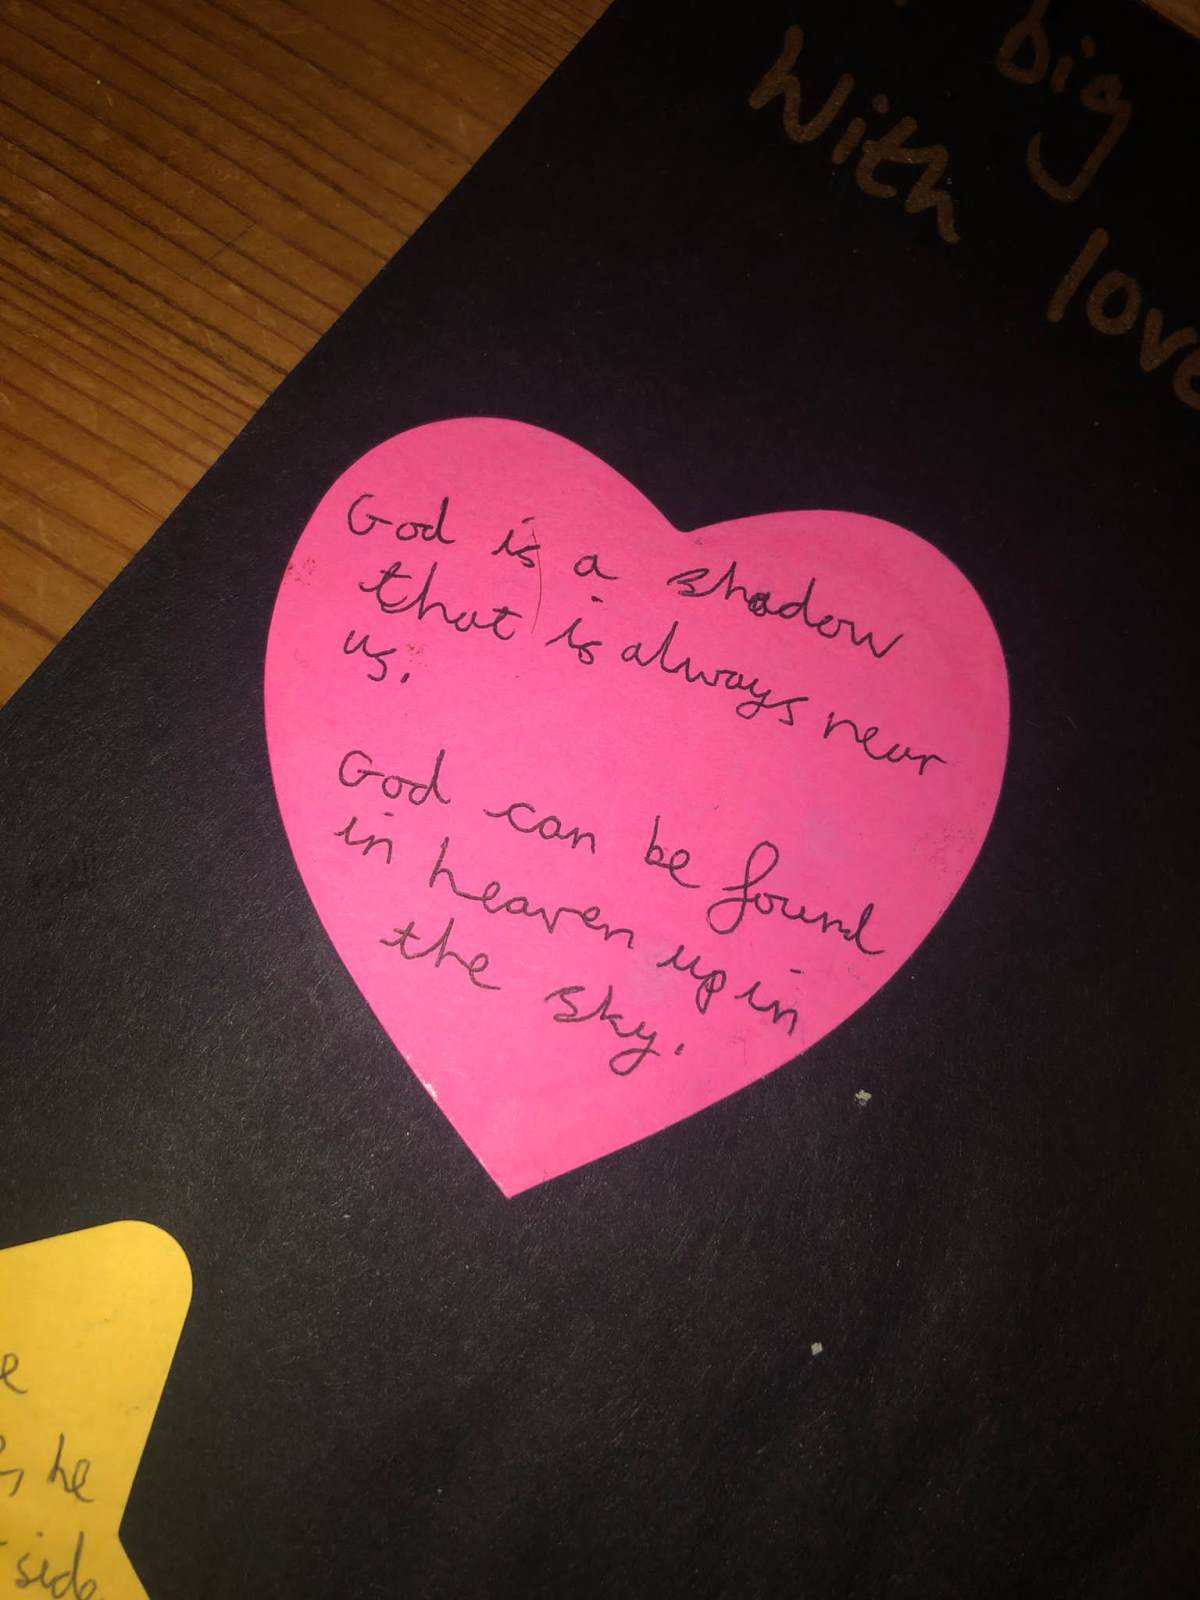 big
With love
God is a shadow
that is always near
us.
God can be found
in heaven up in
the sky.
he
side